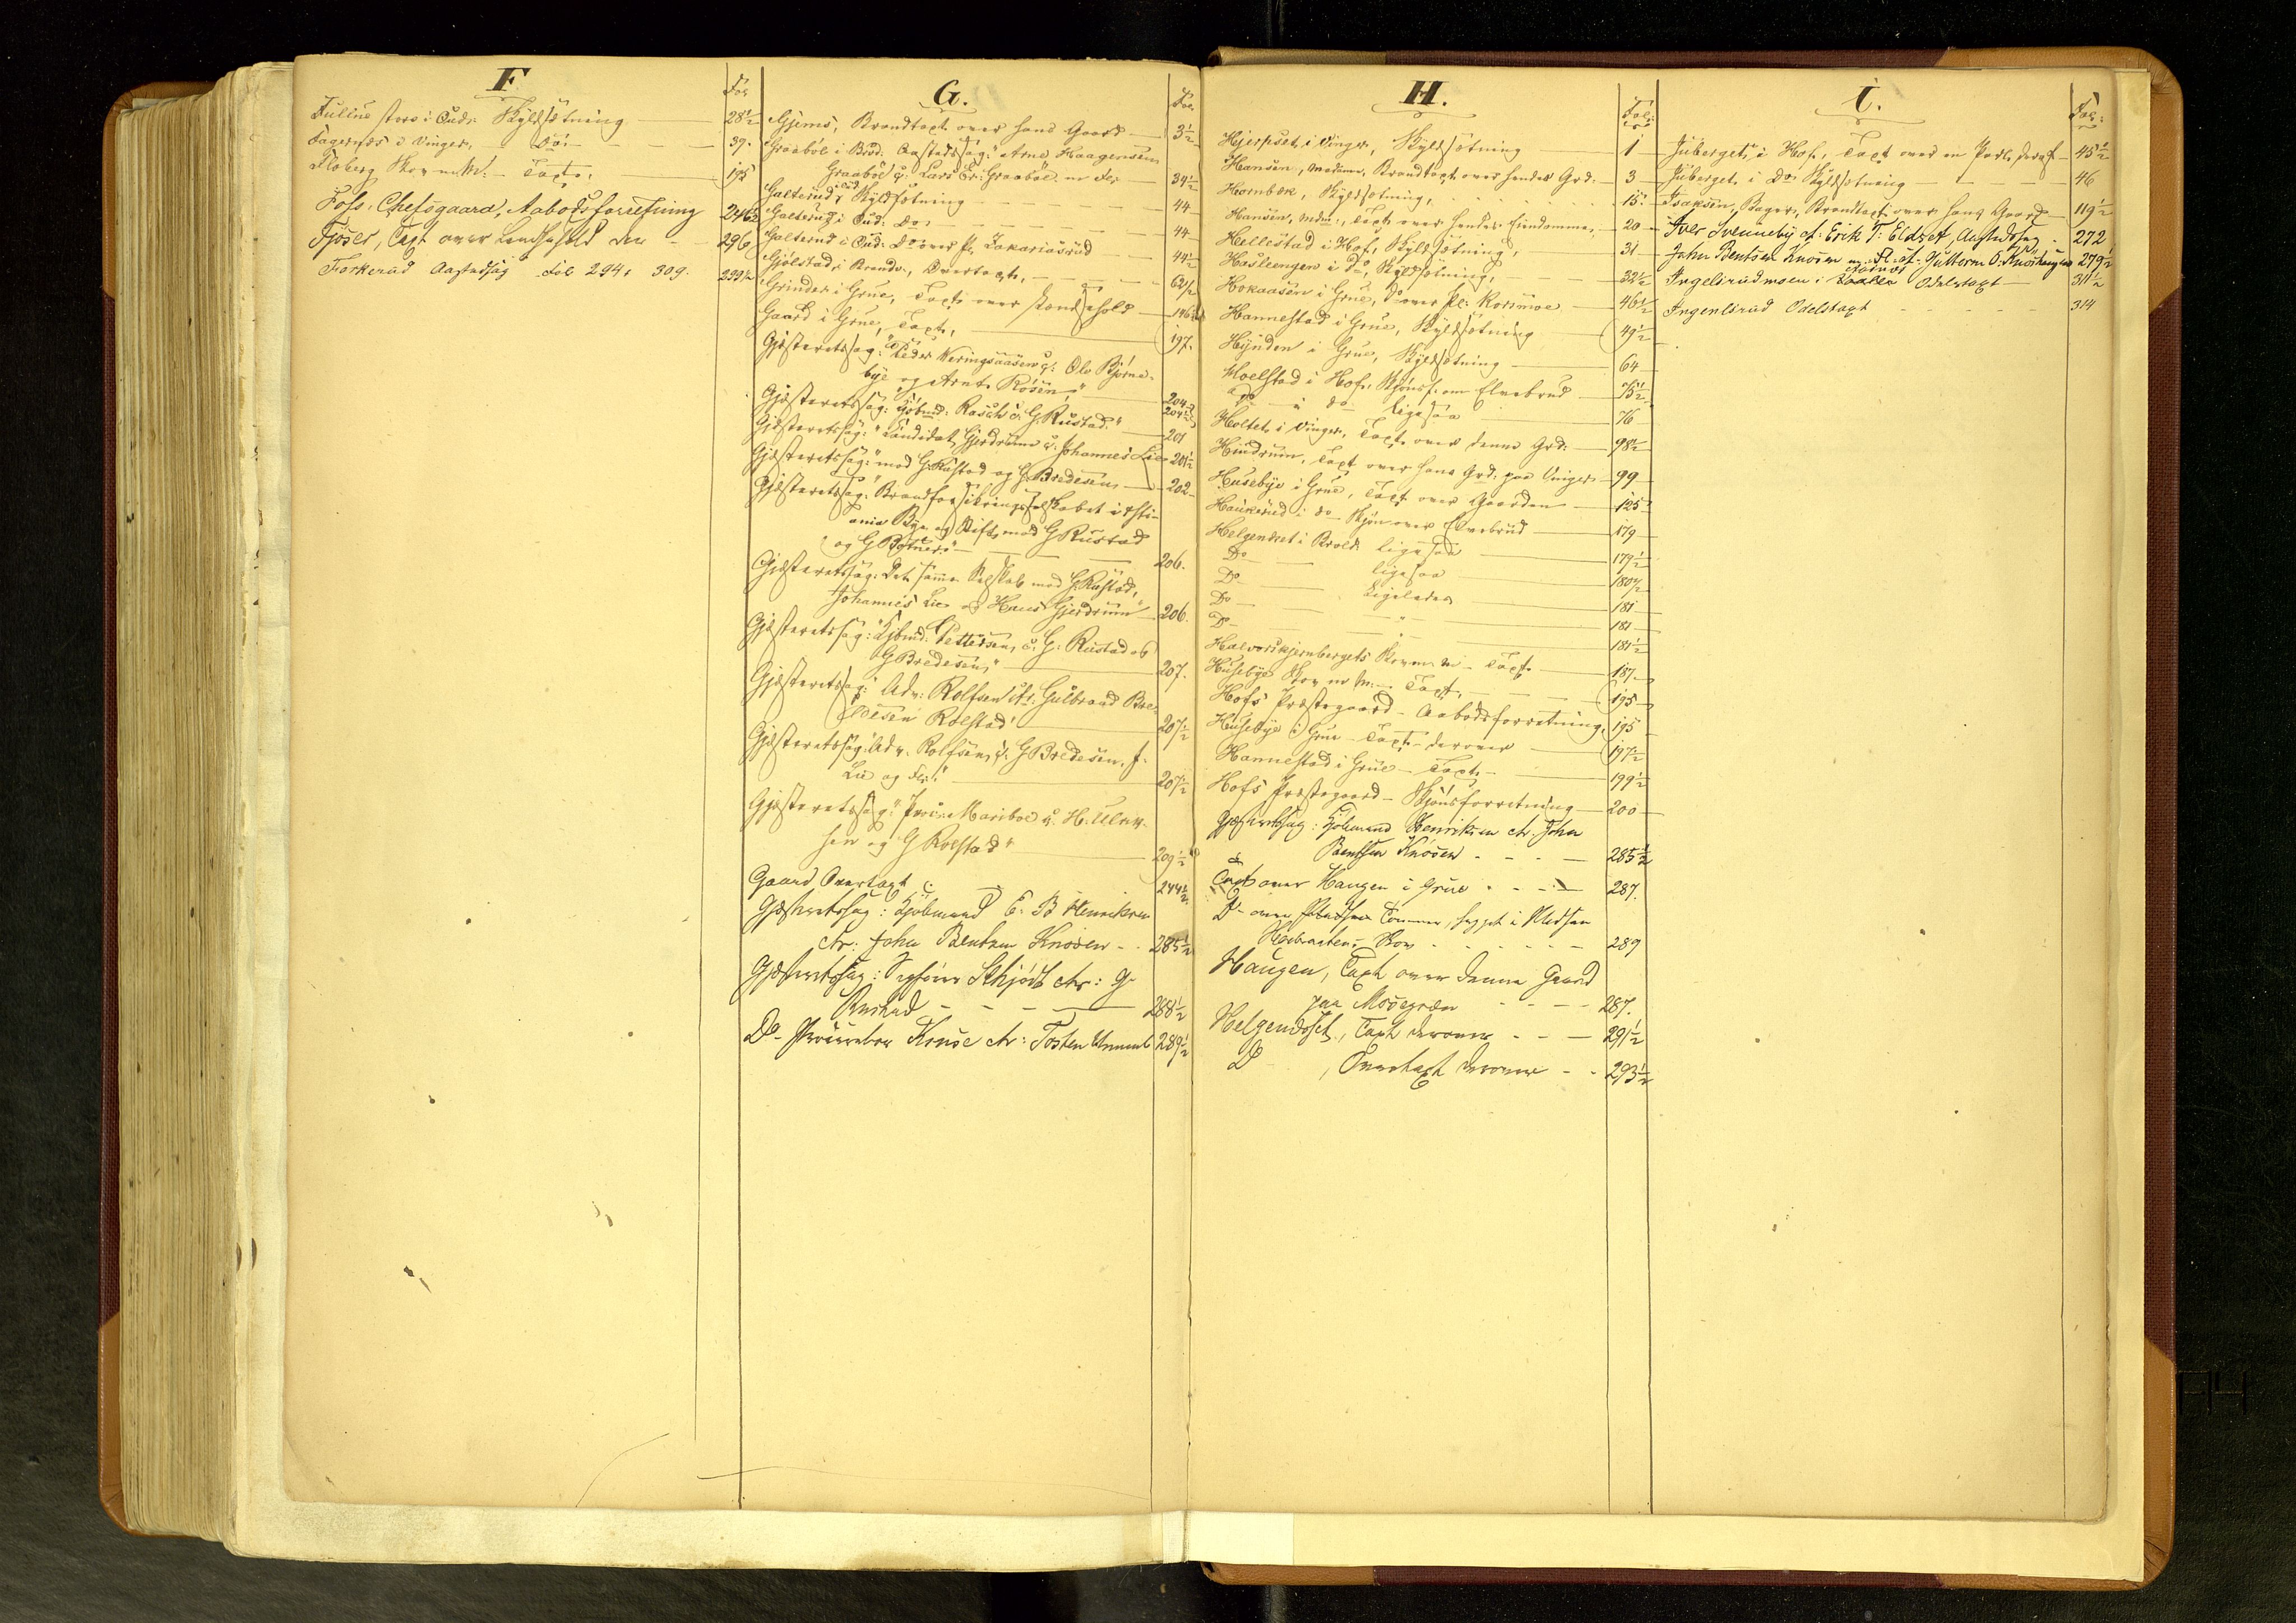 F.
Fol
Fulius store i Eids. Skyldsætning 28½
Fagernæs i Vinger, do: 39.
Floberg Skov m. M. - Taxt, 195
Fols. Chefsgaard, Aabodsforretning 246½
Fjøser, Taxt over 296
Forkerud Aastedsag Fol 294, 309. 299½
G.
Fol.
Gjems, Brandtaxt over hans Gaard 3½
Graabøl i Brod. Aastedssag: "Arne Haagensen
Graabøl c/ Lars Er: Graabøl m Fl. 34½
Galterud, Skyldsætning 44
Galterud i Eid: Do 44
Galterud i Eid: Do over Pl. Zakariasrud 44½
Gjølstad i Brandv., Overtaxt, 62½
Grinder i Grue, Taxt over Leondsehold 146½
Gaard i Grue, Taxt, 197.
Gjæsteretssag: "Peder Veringsaasen c/: Ole Bjørne-
bye og Arnt Rosen" 204
Gjæsteretssag: Kjøbmd: Rasch c/ G. Rustad." 204½
Gjæsteretssag: "Candidat Gjerdrum c/. Johannes Lie 201
Gjæsteretssag: "mod G. Rustad og G. Bredesen 201½
Gjæsteretssag: Brandforsikringsselskabet i Christi- 202
ania Bye og Stift mod G Rustad
og G Bøtner" 206.
Gjæsteretssag: Det samme Selskab mod G. Rustad,
Johannes Lie og Hans Gjerdrum" 206.
Gjæsteretssag: "Kjøbmd: Pettersen, c/. G. Rustad og
G Bredesen," 207.
Gjæsteretssag: Adv: Rolfsen ctr. Gulbrand Bre-
desen Rolstad" 207½
Gjæsteretssag: Adv. Rolfsen, c/. G Bredesen, J.
Lie og Fl." 207½
Gjæsteretssag: "Proc: Mariboe c/. H. Ulrik-
sen og G Rolstad" 209½
Gaard Overtaxt 244½
Gjæsteretssag: Kjøbmand E. B Henriksen
ctr: John Bentsen Knosen 285½
Gjæsteretssag: Sagfører Schjødt ctr: G.
Rustad 288½
Do Procurator Kruse ctr: Tosten 289½
H.
Fol:
Hjerpset i Vinger, Skyldsætning 1
Hansen, Madame, Brandtaxt over hendes Grd. 3
Hornbæk, Skyldsætning, 15
Hansen, Mdm:, Taxt over hendes Eiendomme, 20
Hellestad i Hof, Skyldsætning, 31
Haslerengen i do, Skyldsætning, 32½
Hokaasen i Grue, do over Pl: Korsmoe 46½
Hannestad i Grue, Skyldsætning 49½
Hynden i Grue, Skyldsætning 64
Moelstad i Hof, Skjønsf. om Elvebrud 75½
do i do ligesaa 76
Holtet i Vinger, Taxt over denne Grd: 98½
Hindrum, Taxt over hans Grd: paa Vinger 99
Husebye i Grue, Taxt over Gaarden 125
Haukerud i do Skjøn over Elvebrud 179
Helgendset i Brod: ligesaa 179½
Do ligesaa 180½
Do Ligeledes 181
Do " 181
Do " 181½
Halvorskjernbergets Skov m M - Taxt 187
Husebye Skov m M.- Taxt, 195
Hofs Præstegaard - Aabodsforretning, 195
Husebye i Grue - Taxt derover 197½
Hannestad i Grue - Taxt 199½
Hofs Præstegaard - Skjønsforretning 200
Gjæsteretssag: Kjøbmand Henriksen ctr. John
Bentsen Knosen 285½
Taxt over Haugen i Grue 287.
Do over Tømmer, hugget i Madsen
Skov 289
Haugen, Taxt over denne Gaard
paa 287.
Helgendset, Taxt derover 291½
Do, Overtaxt derover 293½
I.
Fol:
Juberget, i Hof, Taxt over en Part deraf 45½
Juberget, i Do Skyldsætning 46
Isaksen, Bager, Brandtaxt over hans Gaard 119½
Iver Svenneby ct: Erik T: Eldset, Aastedssag 272
John Bentsen Knosen m. Fl. ct. Guttorm O. Knoshaugen 279½
Ingelsrudmoen i Odelstaxt 311½
Ingenlsrud Odelstaxt 314